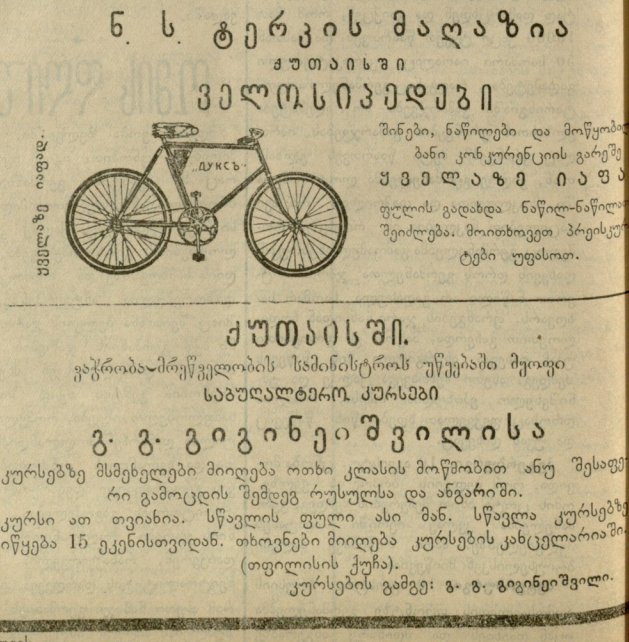 ნ. ს. ტერკის მაღაზია
ქუთაისში
ველოსიპედები
ყველაზე იაფად.
„ДУКСЪ“
შინები, ნაწილები და
ბანი კონკურენციის გარეშე
ყველაზე
ფულის გადახდა
შეიძლება. მოითხოვეთ
ტები უფასოთ.
ქუთაისში.
ვაჭრობა-მრეწველობის სამინისტროს უწყებაში მყოფი
საბუღალტერო კურსები
გ. გ. გიგინეიშვილისა
კურსებზე მსმენელები მიიღება ოთხი კლასის მოწმობით ანუ შესაფე-
რი გამოცდის შემდეგ რუსულსა და ანგარიში.
კურსი ათ თვიანია. სწავლის ფული ასი მან. სწავლა კურსებზე
იწყება 15 ეკენისთვიდან. თხოვნები მიიღება კურსების კანცელარიაში.
(თფილისის ქუჩა).
კურსების გამგე: გ. გ. გიგინეიშვილი.